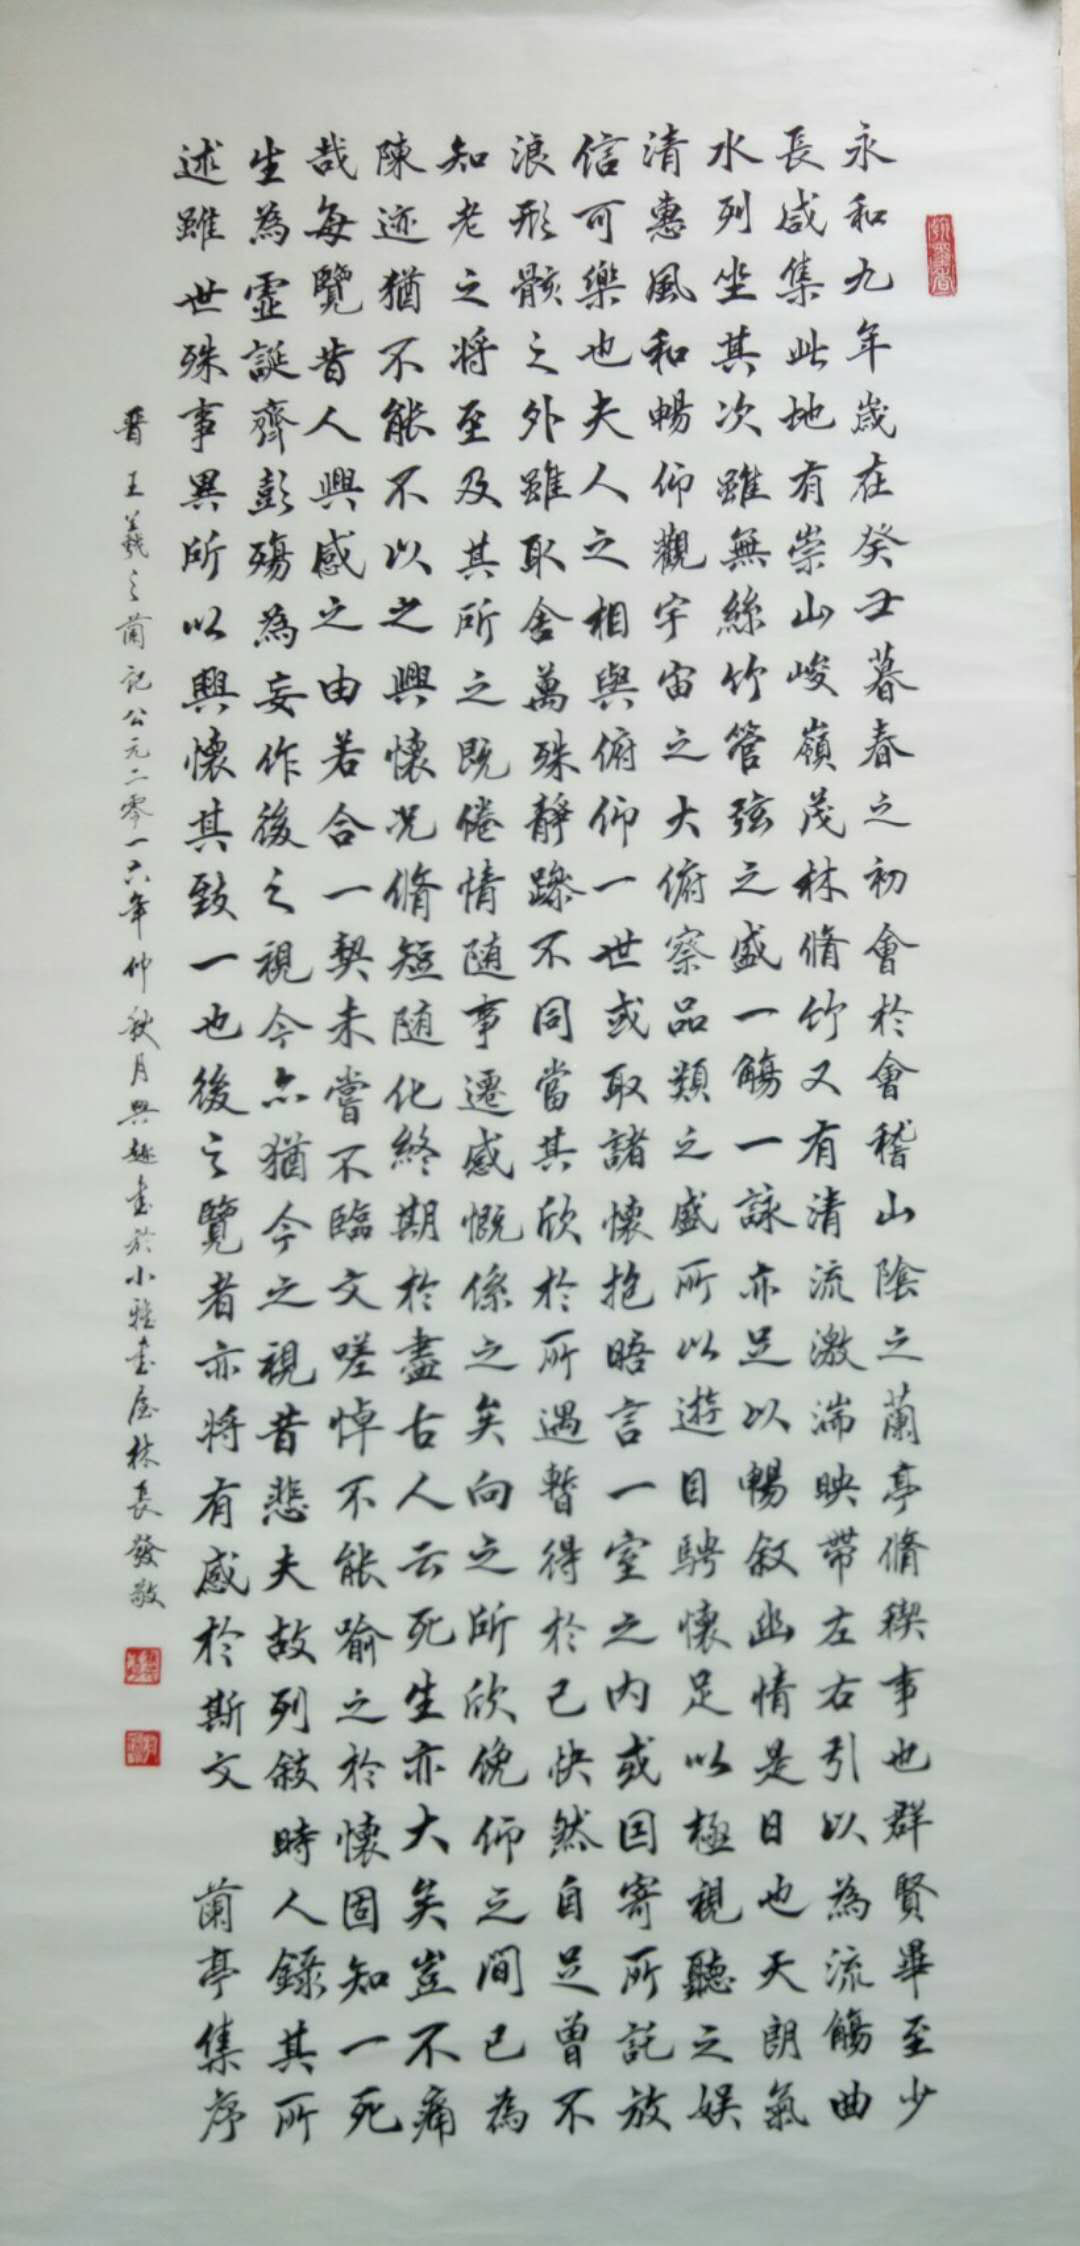 永和九年歲在癸丑暮春之初會於會稽山陰之蘭亭脩禊事也群賢畢至少
長咸集此地有崇山峻嶺茂林脩竹又有清流激湍映帶左右引以為流觴曲
水列坐其次雖無絲竹管弦之盛一觴一詠亦足以暢敘幽情是日也天朗氣
清惠風和暢仰觀宇宙之大俯察品類之盛所以遊目騁懷足以極視聽之娛
信可樂也夫人之相與俯仰一世或取諸懷抱晤言一室之內或因寄所託放
浪形骸之外雖取舍萬殊靜躁不同當其欣於所遇暫得於己快然自足曾不
知老之將至及其所之既倦情随事遷感慨係之矣向之所欣俛仰之間已為
陳迹猶不能不以之興懷況脩短随化終期於盡古人云死生亦大矣豈不痛
哉每覽昔人興感之由若合一契未嘗不臨文嗟悼不能喻之於懷固知一死
生為虛誕齊彭殤為妄作後之視今亦猶今之視昔悲夫故列敍時人錄其所
述雖世殊事異所以興懷其致一也後之覽者亦將有感於斯文 蘭亭集序
晋王羲之蘭記公元二零一六年仲秋月興趣書於小雅書屋林長發敬